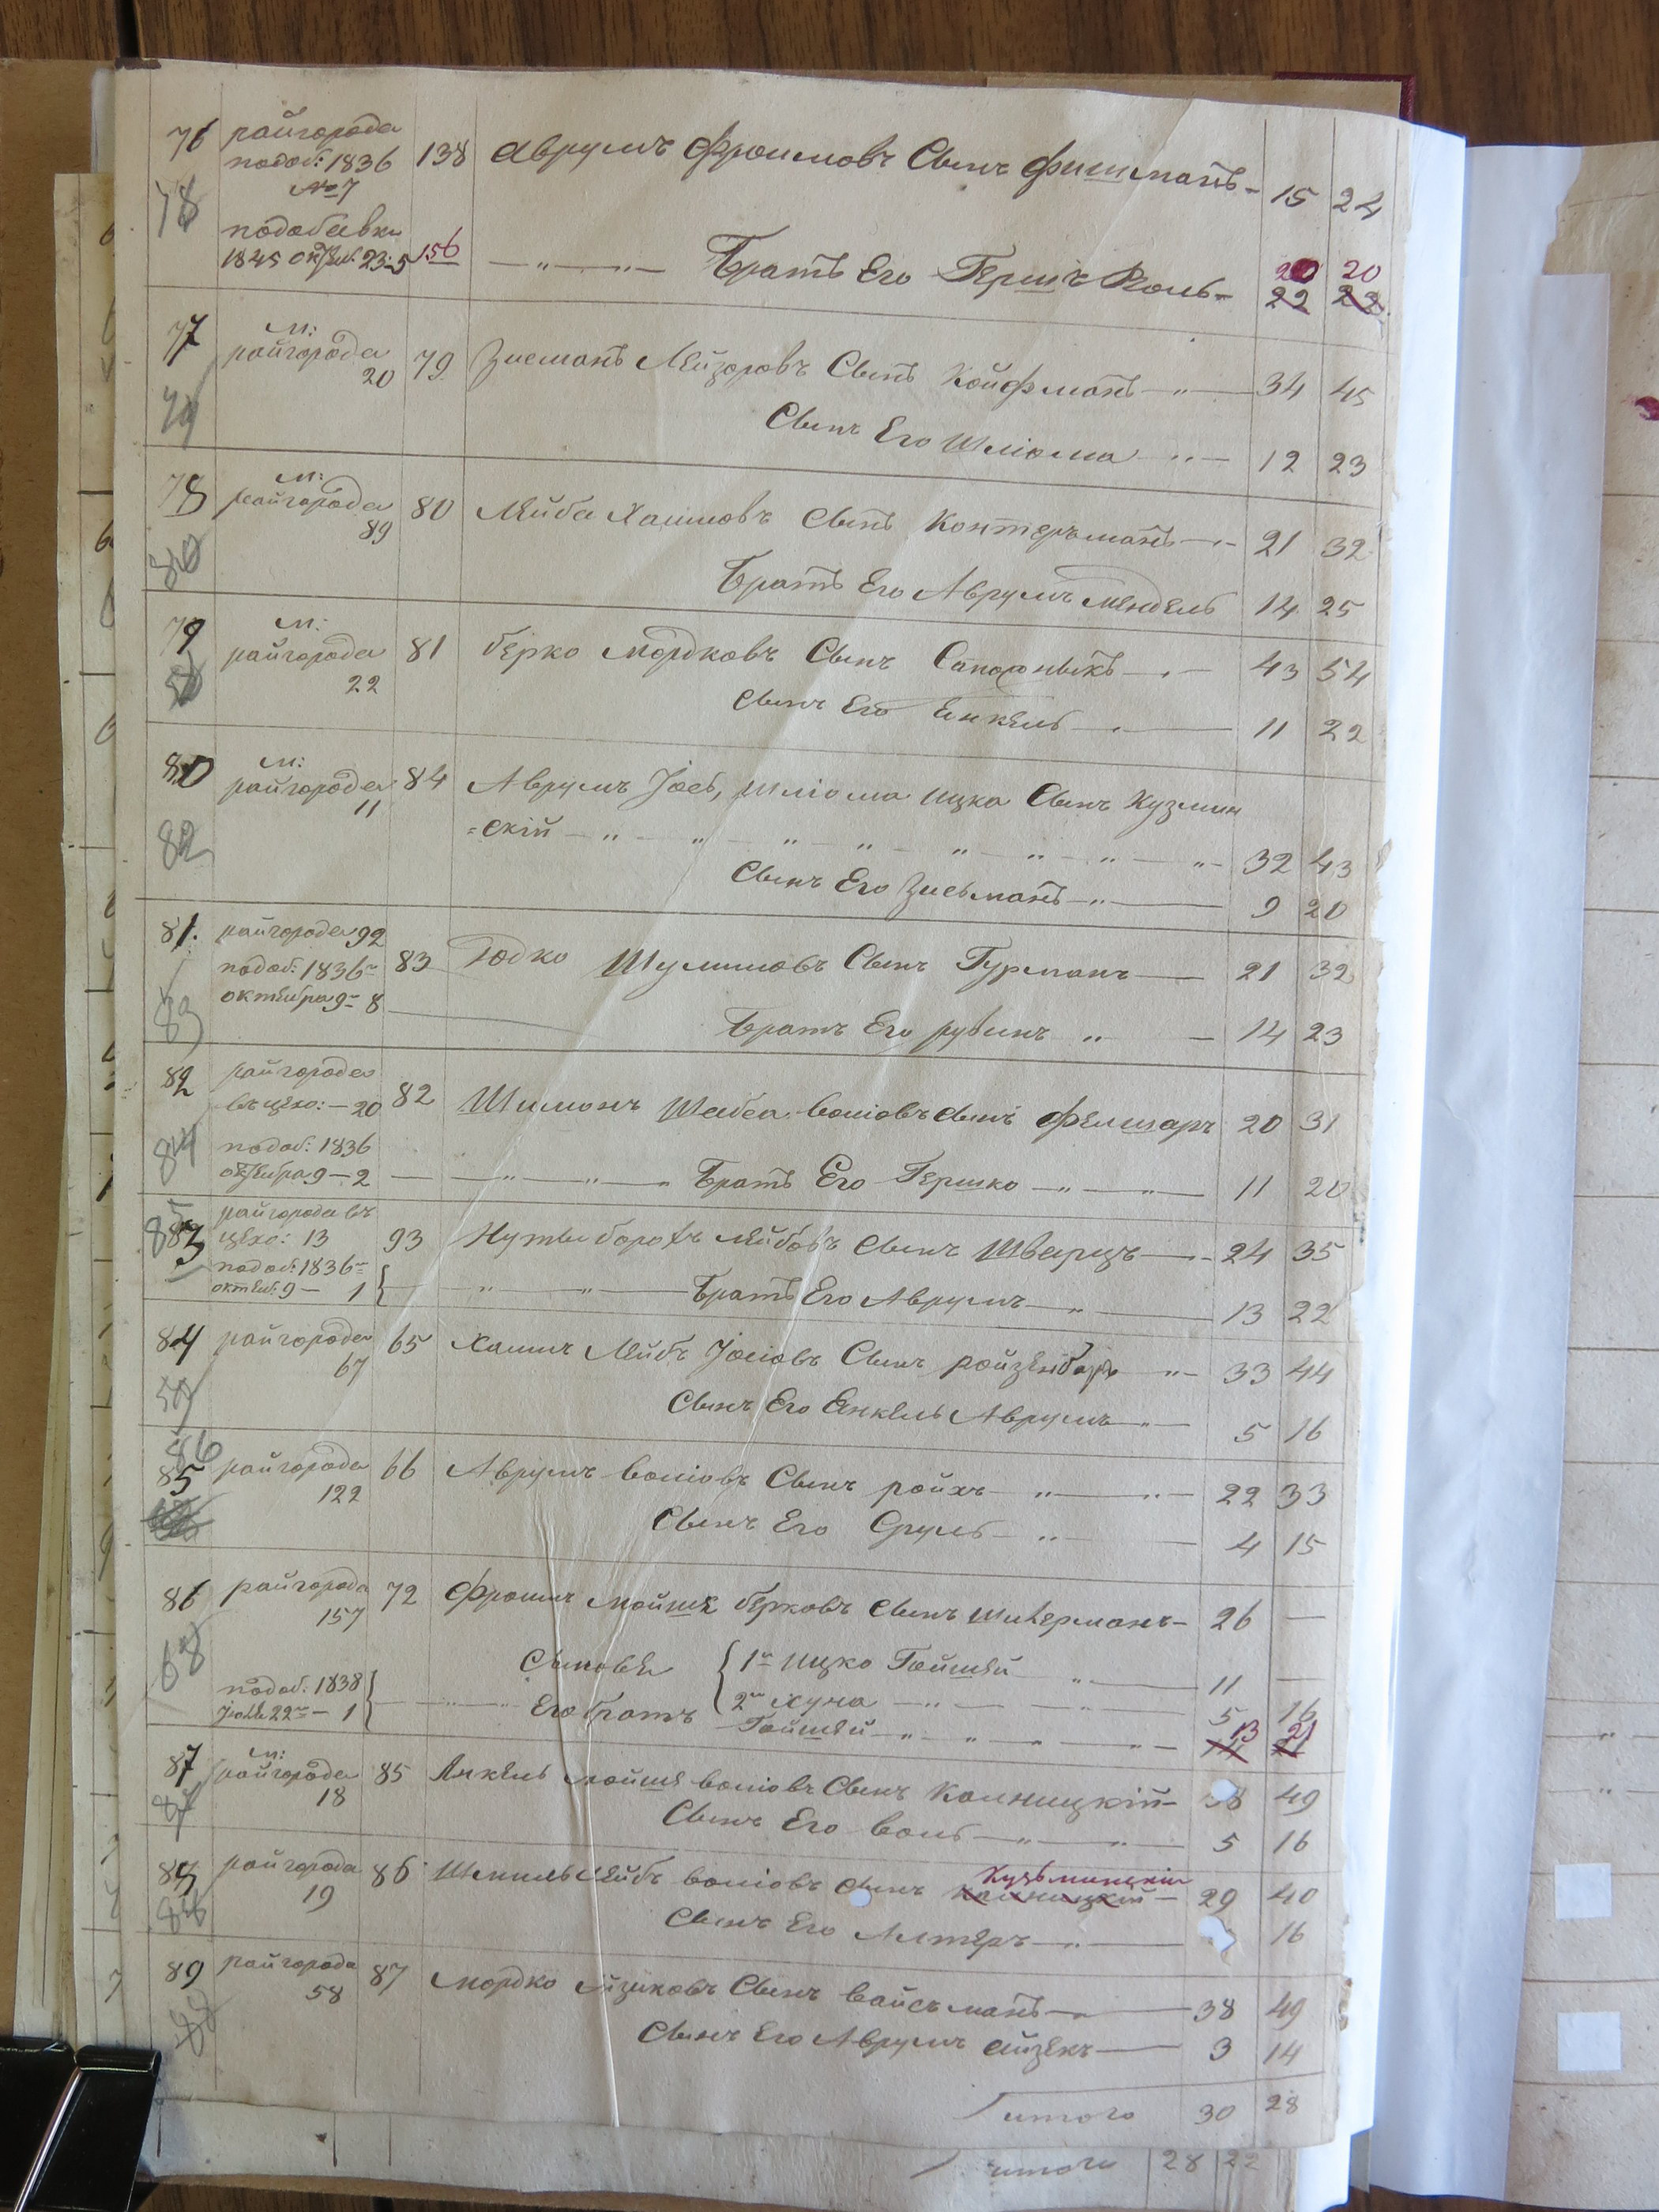 76 райгорода 138 Аврумъ Фроимовъ Сынъ Фишманъ 15 24
подоб: 1836
№ 7
78 подобавки
1845 Октяб. 23: 5 156 Братъ Его Гершъ Волъ 20 20
22 22
77 м:
райгорода 79 Зисманъ Лейзоровъ Сынъ Койфманъ 34 45
20
79 Сынъ Его Шліома 12 23
78 м:
райгорода 80 Лейба Хаимовъ Сынъ Контерманъ 21 32
89
80 Братъ Его Аврумъ Мендель 14 25
79 м:
райгорода 81 Берко Мордковъ Сынъ 43 54
22
Сынъ Его Янкель 11 22
80 м:
райгорода 84 Аврумъ Іось, Шліома Ицка Сынъ Кузмин
11
82 =скій 32 43
Сынъ Его Зисьманъ 9 20
81. райгорода 92
подоб: 1836 83 Юдко Шулимовъ Сынъ Гурманъ 21 32
октября 9 8
83 Братъ Его Рувинъ 14 23
82 райгорода
въ цехо: 20 82 Шимонъ Шебса Волiовъ Сынъ Фелшаръ 20 31
84 подоб: 1836
октября 9 — 2 Братъ Его Гершко 11 20
85
83 райгорода въ
цехо: 13 93 Нуты Борохъ Лейбовъ Сынъ Шварцъ 24 35
подоб: 1836
октяб: 9 — 1 Братъ Его Аврумъ 13 22
84 райгорода 65 Хаимъ Лейбъ Іосіовъ Сынъ 33 44
67
59 Сынъ Его Янкель Аврумъ 5 16
86
85 райгорода 66 Аврумъ Волiовъ Сынъ Ройхъ 22 33
122
Сынъ Его Сруль 4 15
86 райгорода 72 Фроимъ Мойше Берковъ Сынъ 26 —
157
68 Сыновья 1й Ицко Гойшей 11 —
подоб: 1838 2й Хуна 5 16
Іюля 22 — 1 Его братъ Гойшей 13 21
87 м:
райгорода 85 Янкель Мойше Волiовъ Сынъ Колницкій 38 49
18
Сынъ Его Воль 5 16
88 райгорода 86 Шмиль Лейбъ Волiовъ Сынъ Кузьминскій 29 40
19
Сынъ Его Алтеръ 16
89 райгорода 87 Мордко Айзиковъ Сынъ Вайсъманъ 38 49
58
88 Сынъ Его Аврумъ Айзекъ 3 14
итого 30 28
итого 28 22